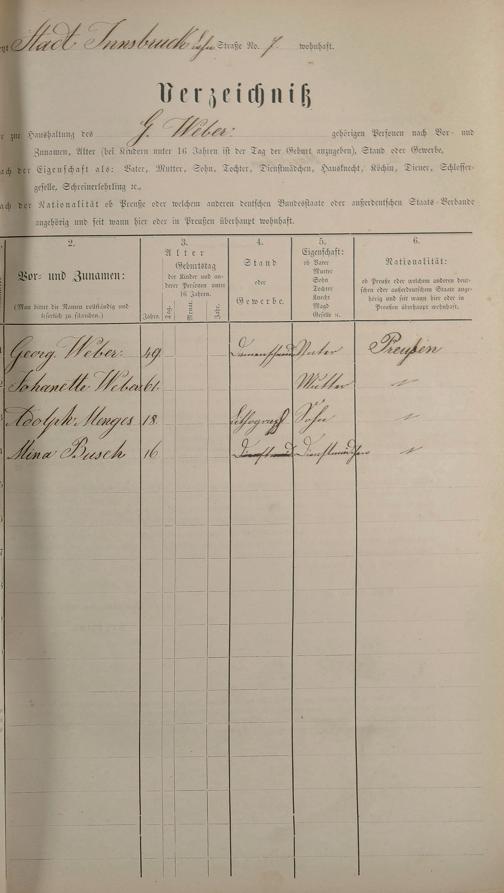 Stadt Innsbruck Straße No. 7 wohnhaft.
Verzeichniß
zur Haushaltung des G. Weber gehörigen Personen nach Vor- und
Zunamen, Alter (bei Kindern unter 16 Jahren ist der Tag der Geburt anzugeben), Stand oder Gewerbe,
nach der Eigenschaft als: Vater, Mutter, Sohn, Tochter, Dienstmädchen, Hausknecht, Köchin, Diener, Schlosser-
geselle, Schreinerlehrling ꝛc.,
nach der Nationalität ob Preuße oder welchem anderen deutschen Bundesstaate oder außerdeutschen Staats-Verbande
angehörig und seit wann hier oder in Preußen überhaupt wohnhaft.
2. 3. 4. 5. 6.
Vor- und Zunamen:
(Man bittet die Namen vollständig und
leserlich zu schreiben.)
Alter
Geburtstag
der Kinder und an-
derer Personen unter
16 Jahren.
Jahre. Tag. Monat. Jahr.
Stand
oder
Gewerbe.
Eigenschaft:
ob Vater
Mutter
Sohn
Tochter
Knecht
Magd
Geselle ꝛc.
Nationalität:
ob Preuße oder welchem anderen deut-
schen oder außerdeutschen Staate ange-
hörig und seit wann hier oder in
Preußen überhaupt wohnhaft.
Georg Weber 49 Vater Preußen
Johanette Weber 61 Mutter "
Adolph Menges 18 Lithograph Sohn "
Mina Busch 16 Dienstmädchen "